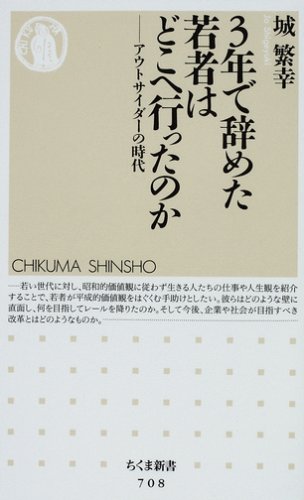 3年で辞めた
若者は
どこへ行ったのか
──アウトサイダーの時代
城 繁幸
CHIKUMA SHINSHO
──若い世代に対し、昭和的価値観に従わず生きる人たちの仕事や人生観を紹
介することで、若者が平成的価値観をはぐくむ手助けとしたい。彼らはどのような壁に
直面し、何を目指してレールを降りたのか。そして今後、企業や社会が目指すべき
改革とはどのようなものか。
ちくま新書
708